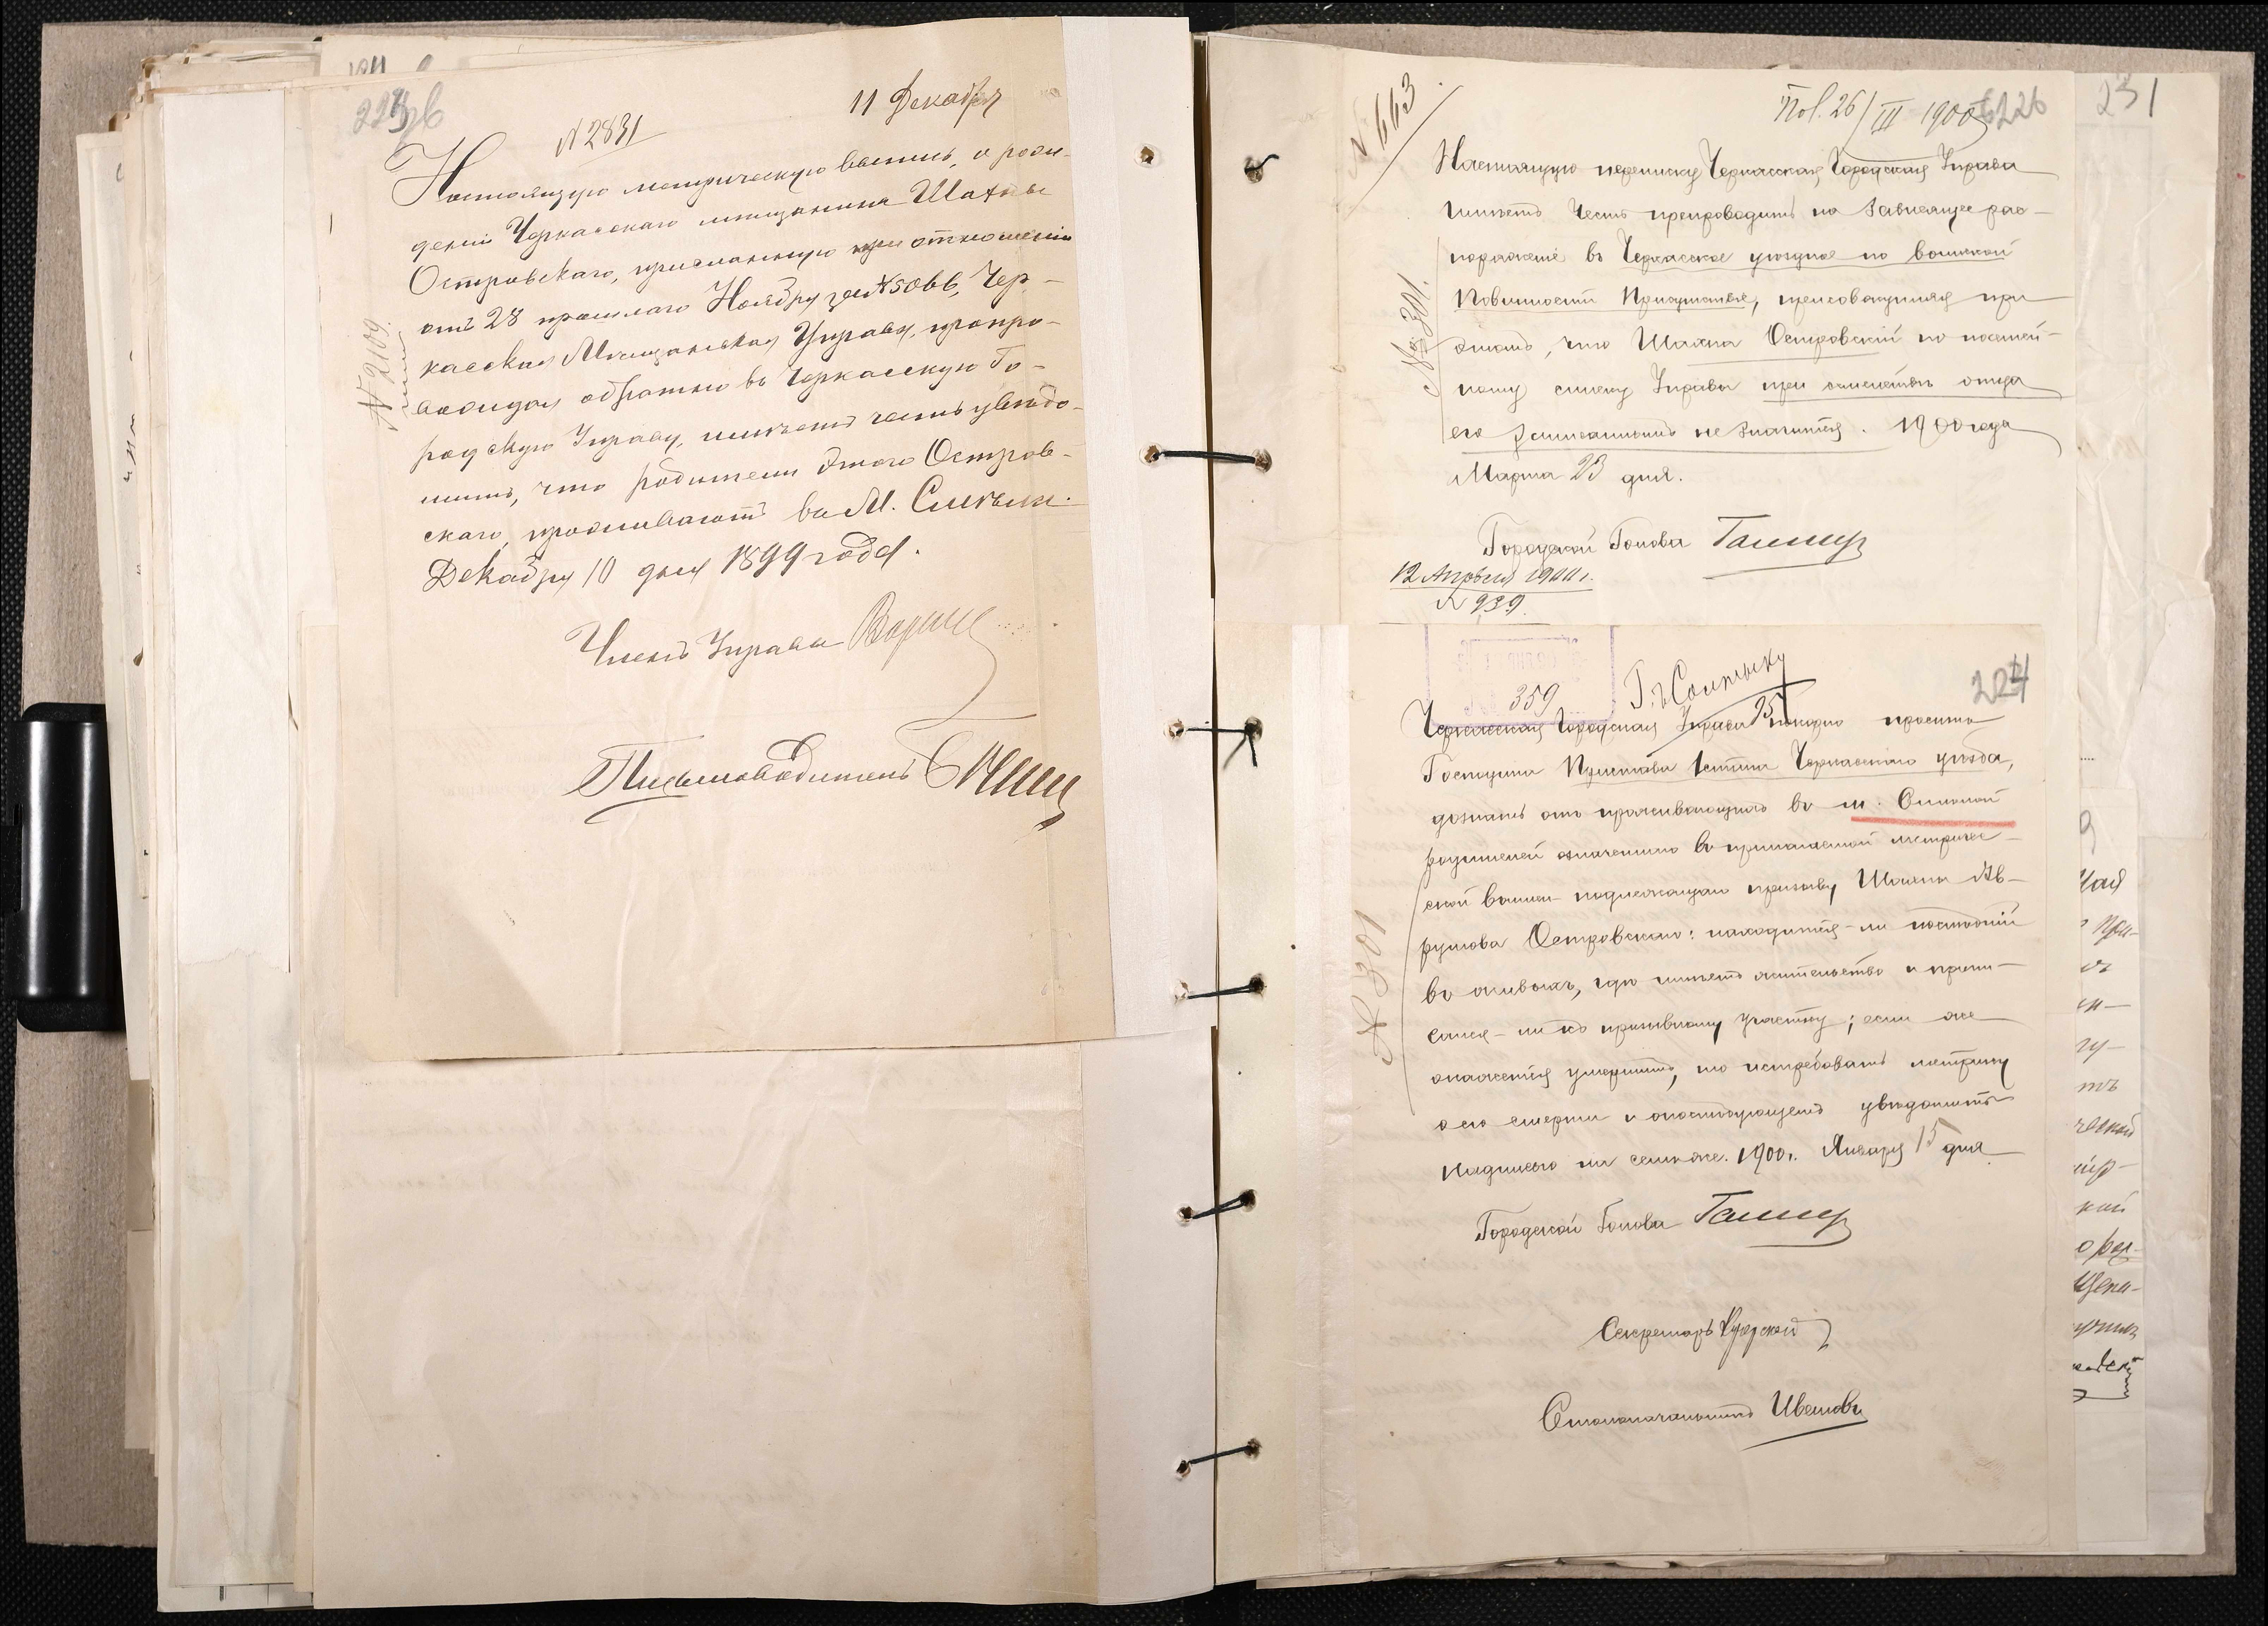 11 Декабря
№ 2831
Настоящую метрическую выпись, о рож-
деніи Черкасскаго мещанина Шахны
Островскаго, присланную при отношеніи
отъ 28 прошлаго Ноября за № 5066, Чер-
касская Мещанская Управа, препро-
вождая обратно въ Черкасскую Го-
родскую Управу, имѣетъ честь увѣдо-
мить, что родители этого Остров-
скаго, проживаютъ въ М. Смѣлѣ.
Декабря 10 дня 1899 года.
Членъ Управы
Письмоводитель
№ 2109
№ 663
Пол. 26/III 1900
226
231
Настоящую переписку Черкасская Городская Управа
имѣетъ честь препроводить на зависящее рас-
поряженіе въ Черкасское уѣздное по воинской
Повинности Присутствіе, присовокупляя при
этомъ, что Шахна Островскій по посемей-
ному списку Управы при семействѣ отца
его записаннымъ не значится. 1900 года
Марта 23 дня.
№ 301.
Городской Голова
12 Апрѣля 1900 г.
№ 939.
359
224
Черкасская Городская Управа покорно проситъ
Господина Пристава 1 стана Черкасскаго уѣзда,
дознать отъ проживающихъ въ м. Смѣлой
родителей означеннаго въ прилагаемой метриче-
ской выписи подлежащаго призыву Шахны Ав-
румова Островскаго: находится-ли послѣдній
въ живыхъ, гдѣ имѣетъ жительство и припи-
сался-ли къ призывному участку; если же
окажется умершимъ, то истребовать метрику
о его смерти и о послѣдующемъ увѣдомить
надписью на семъ-же. 1900 г. Января 15 дня
№ 301
Городской Голова
Секретарь
Столоначальникъ